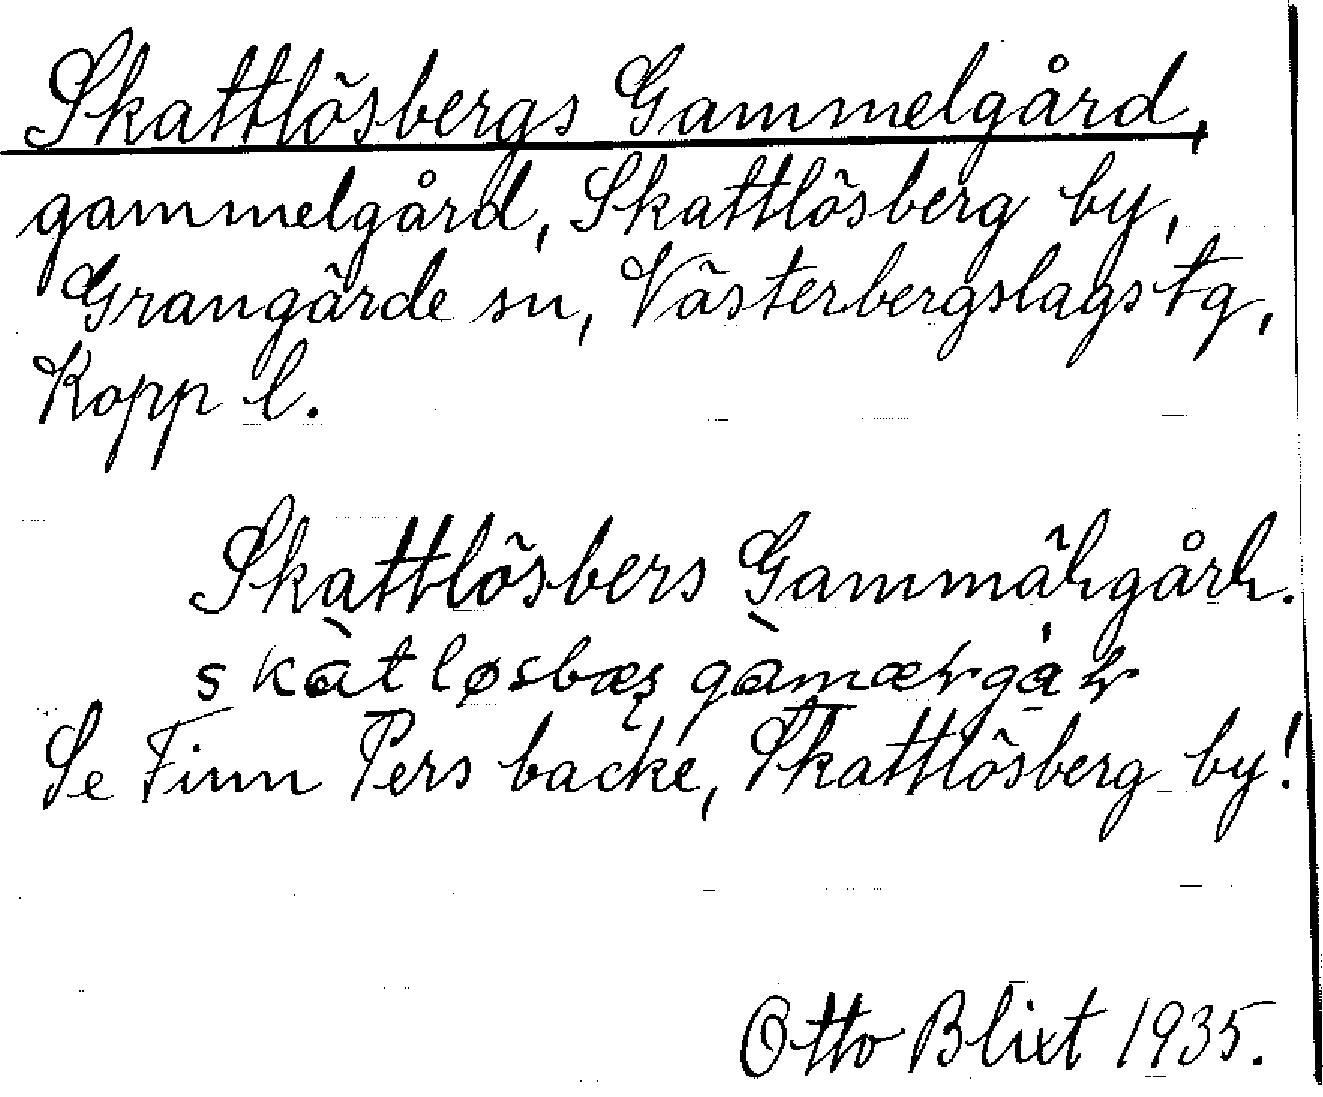 Skattlösbergs Gammelgård,
gammelgård, Skattlösberg by,
Grangärde sn, Västerbergslags tg,
Kopp l.
Skattlösbers Gammäḷgårḷ.
Se Finn Pers backe, Skattlösberg by!
Otto Blixt 1935.